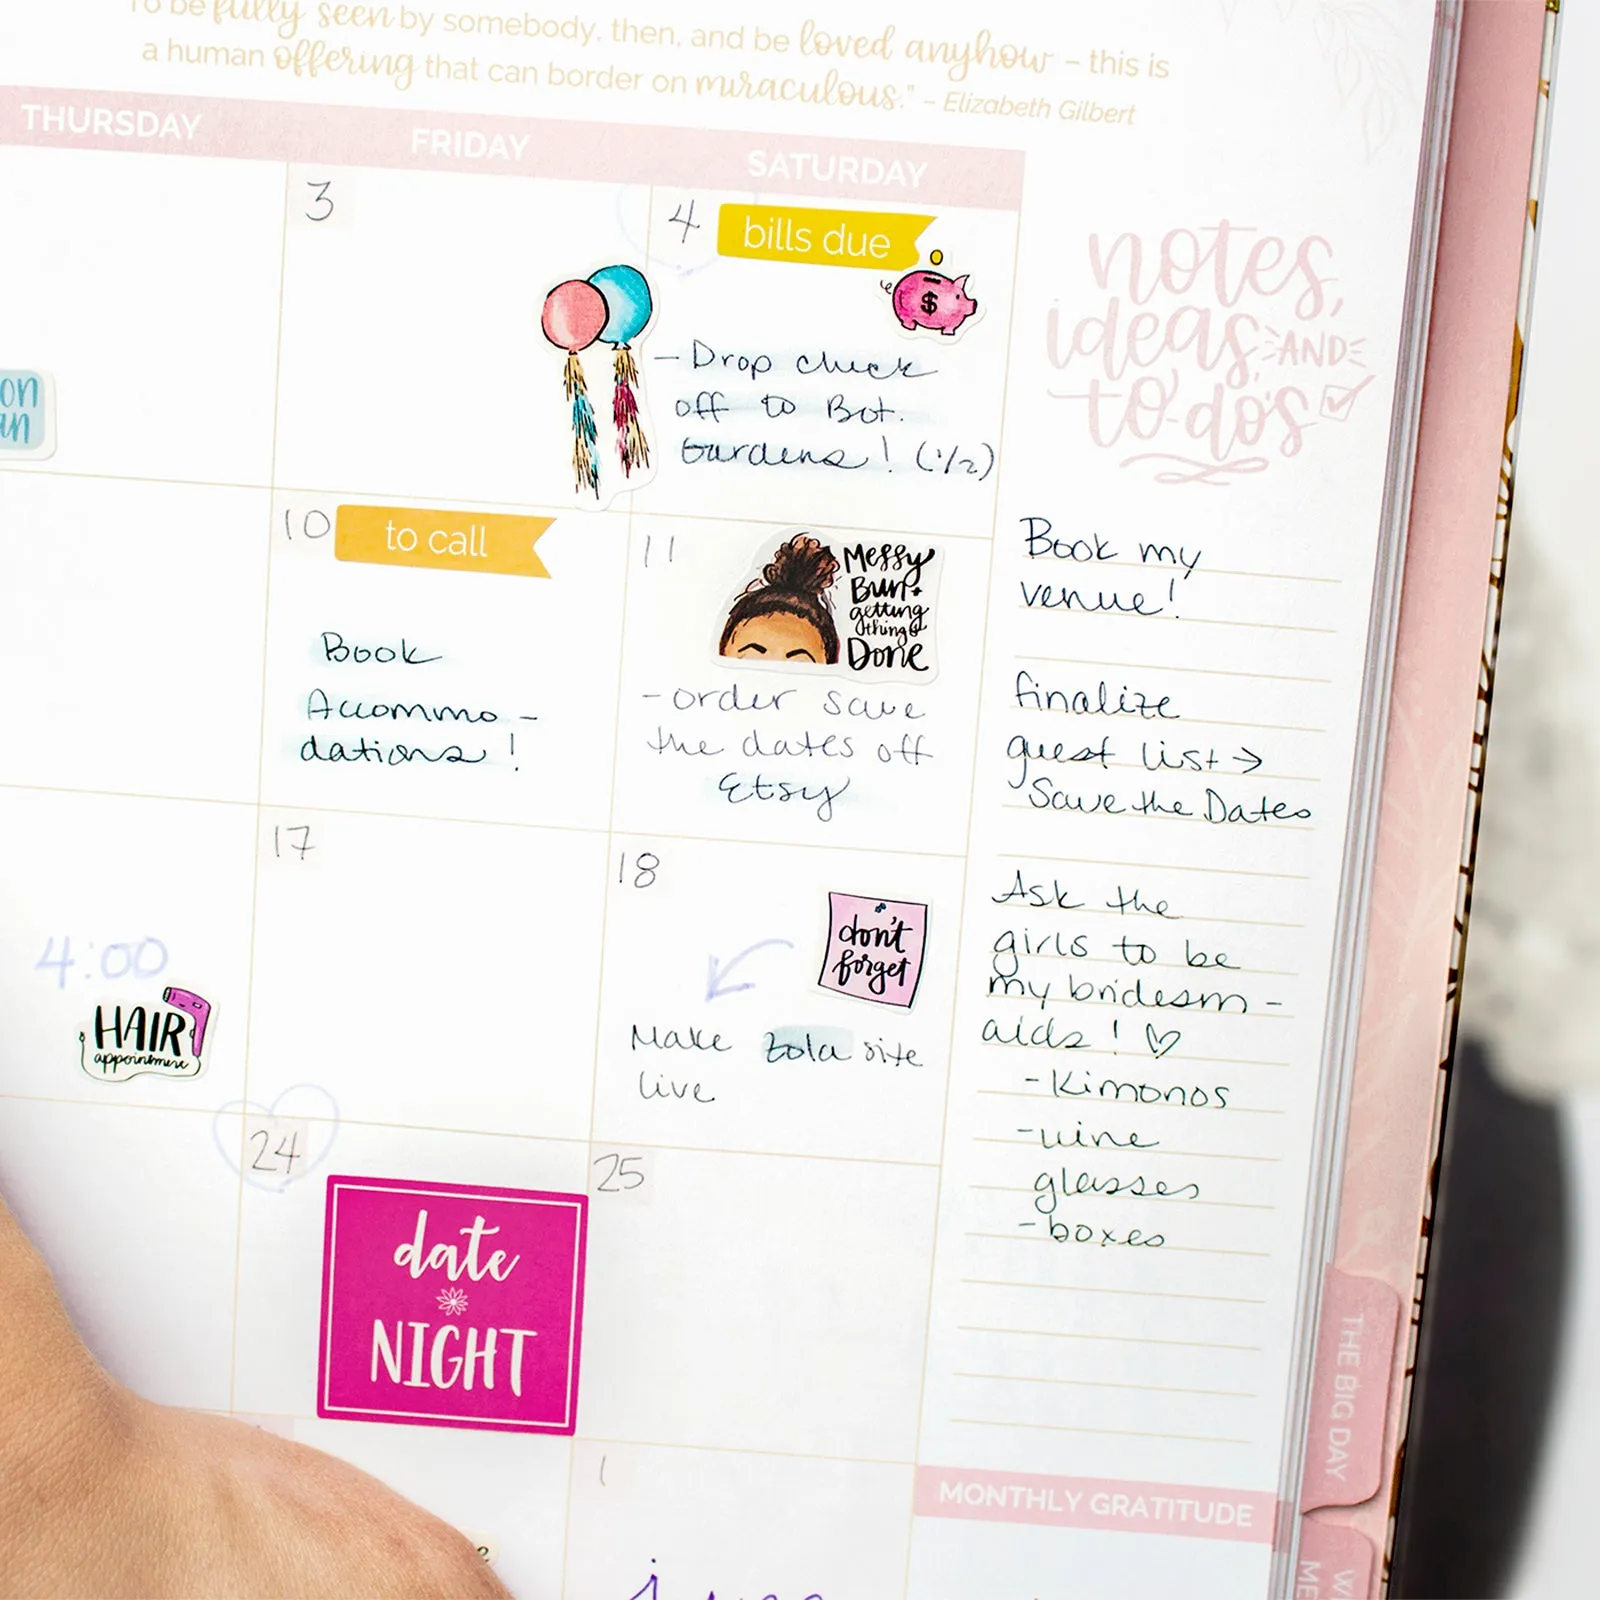 To be fully seen by somebody, then, and be loved anyhow – this is
a human offering that can border on miraculous." – Elizabeth Gilbert
THURSDAY
FRIDAY
SATURDAY
3
4
bills due
$
- Drop check
off to Bot.
Gardens! (1/2)
notes,
ideas, AND
to-do's
on
an
10
to call
Book
Accommo -
dations!
11
Messy
Bun +
getting
things
Done
- order save
the dates off
Etsy
Book my
venue!
finalize
guest list →
Save the Dates
Ask the
girls to be
my bridesm -
aids! ♡
- Kimonos
- wine
glasses
- boxes
4:00
HAIR
appointment
17
18
don't
forget
Make Zola site
live
24
date
NIGHT
25
1
MONTHLY GRATITUDE
THE BIG DAY